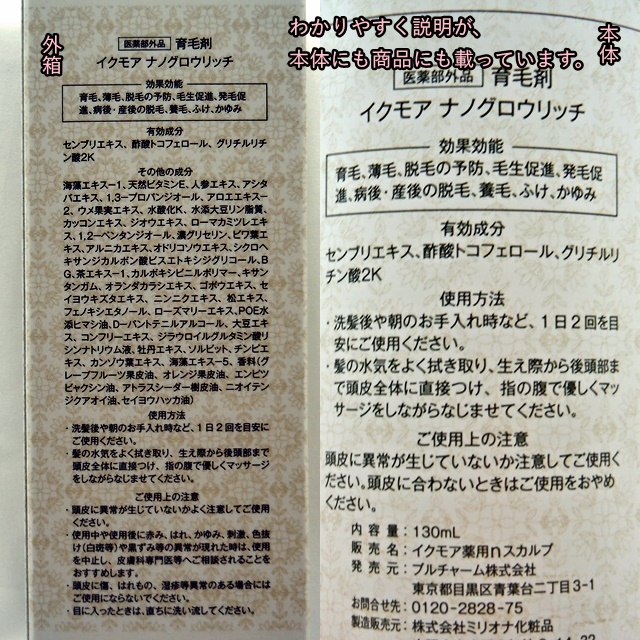 外箱
わかりやすく説明が、
本体にも商品にも載っています。
本体
医薬部外品 育毛剤
イクモア ナノグロウリッチ
効果効能
育毛、薄毛、脱毛の予防、毛生促進、発毛促
進、病後・産後の脱毛、養毛、ふけ、かゆみ
有効成分
センブリエキス、酢酸トコフェロール、グリチルリチ
ン酸2K
その他の成分
海藻エキス-1、天然ビタミンE、人参エキス、アシタ
バエキス、1,3-プロパンジオール、アロエエキス-
2、ウメ果実エキス、水酸化K、水添大豆リン脂質、
カッコンエキス、ジオウエキス、ローマカミツレエキ
ス、1,2-ペンタンジオール、濃グリセリン、ビワ葉エ
キス、アルニカエキス、オドリコソウエキス、シクロヘ
キサンジカルボン酸ビスエトキシジグリコール、B
G、茶エキス-1、カルボキシビニルポリマー、キサン
タンガム、オランダカラシエキス、ゴボウエキス、セ
イヨウキズタエキス、ニンニクエキス、松エキス、
フェノキシエタノール、ローズマリーエキス、POE水
添ヒマシ油、D-パントテニルアルコール、大豆エキ
ス、コンフリーエキス、ジラウロイルグルタミン酸リ
シンナトリウム液、牡丹エキス、ソルビット、チンピエ
キス、カンゾウ葉エキス、海藻エキス-5、香料(グ
レープフルーツ果皮油、オレンジ果皮油、エンピツ
ビャクシン油、アトラスシーダー樹皮油、ニオイテン
ジクアオイ油、セイヨウハッカ油)
使用方法
・洗髪後や朝のお手入れ時など、1日2回を目安に
ご使用ください。
・髪の水気をよく拭き取り、生え際から後頭部まで
頭皮全体に直接つけ、指の腹で優しくマッサージ
をしながらなじませてください。
ご使用上の注意
・頭皮に異常が生じていないかよく注意してご使用
ください。
・使用中や使用後に赤み、はれ、かゆみ、刺激、色抜
け(白斑等)や黒ずみ等の異常が現れた時は、使用
を中止し、皮膚科専門医等へご相談されることを
おすすめします。
・頭皮に傷、はれもの、湿疹等異常のある場合には
ご使用にならないでください。
・目に入ったときは、直ちに洗い流してください。
医薬部外品 育毛剤
イクモア ナノグロウリッチ
効果効能
育毛、薄毛、脱毛の予防、毛生促進、発毛促
進、病後・産後の脱毛、養毛、ふけ、かゆみ
有効成分
センブリエキス、酢酸トコフェロール、グリチルリ
チン酸2K
使用方法
・洗髪後や朝のお手入れ時など、1日2回を目
安にご使用ください。
・髪の水気をよく拭き取り、生え際から後頭部ま
で頭皮全体に直接つけ、指の腹で優しくマッ
サージをしながらなじませてください。
ご使用上の注意
頭皮に異常が生じていないか注意してご使用く
ださい。頭皮に合わないときはご使用をおやめ
ください。
内容量:130mL
販売名:イクモア薬用nスカルプ
発売元:プルチャーム株式会社
東京都目黒区青葉台二丁目3-1
お問合せ先:0120-2828-75
製造販売元:株式会社ミリオナ化粧品